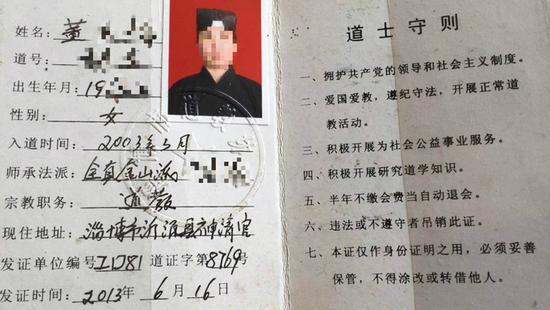 姓名: 董
道号:
出生年月: 19
性别: 女
入道时间: 2003年5月
师承法派: 全真金山派
宗教职务: 道教
现住地址: 淄博市沂源县神清宫
发证单位编号 道证字第8769号
发证时间: 2013年 6 月 16 日
道士守则
一、拥护共产党的领导和社会主义制度。
二、爱国爱教，遵纪守法，开展正常道
教活动。
三、积极开展为社会公益事业服务。
四、积极开展研究道学知识。
五、半年不缴会费当自动退会。
六、违法或不遵守者吊销此证。
七、本证仅作身份证明之用，必须妥善
保管，不得涂改或转借他人。